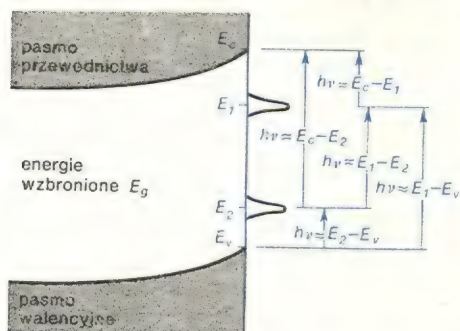 pasmo
przewodnictwa
E_c
E_1
energie
wzbronione E_g
E_2
E_v
pasmo
walencyjne
hν=E_c−E_1
hν=E_c−E_2
hν=E_1−E_2
hν=E_1−E_v
hν=E_2−E_v